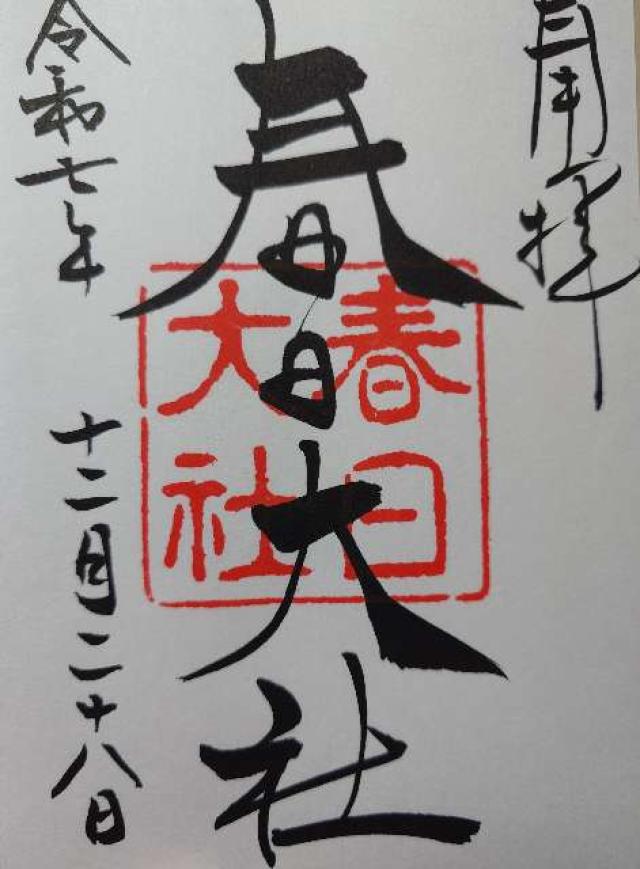 奉拝
春日大社
春日大社
令和七年 十二月二十八日